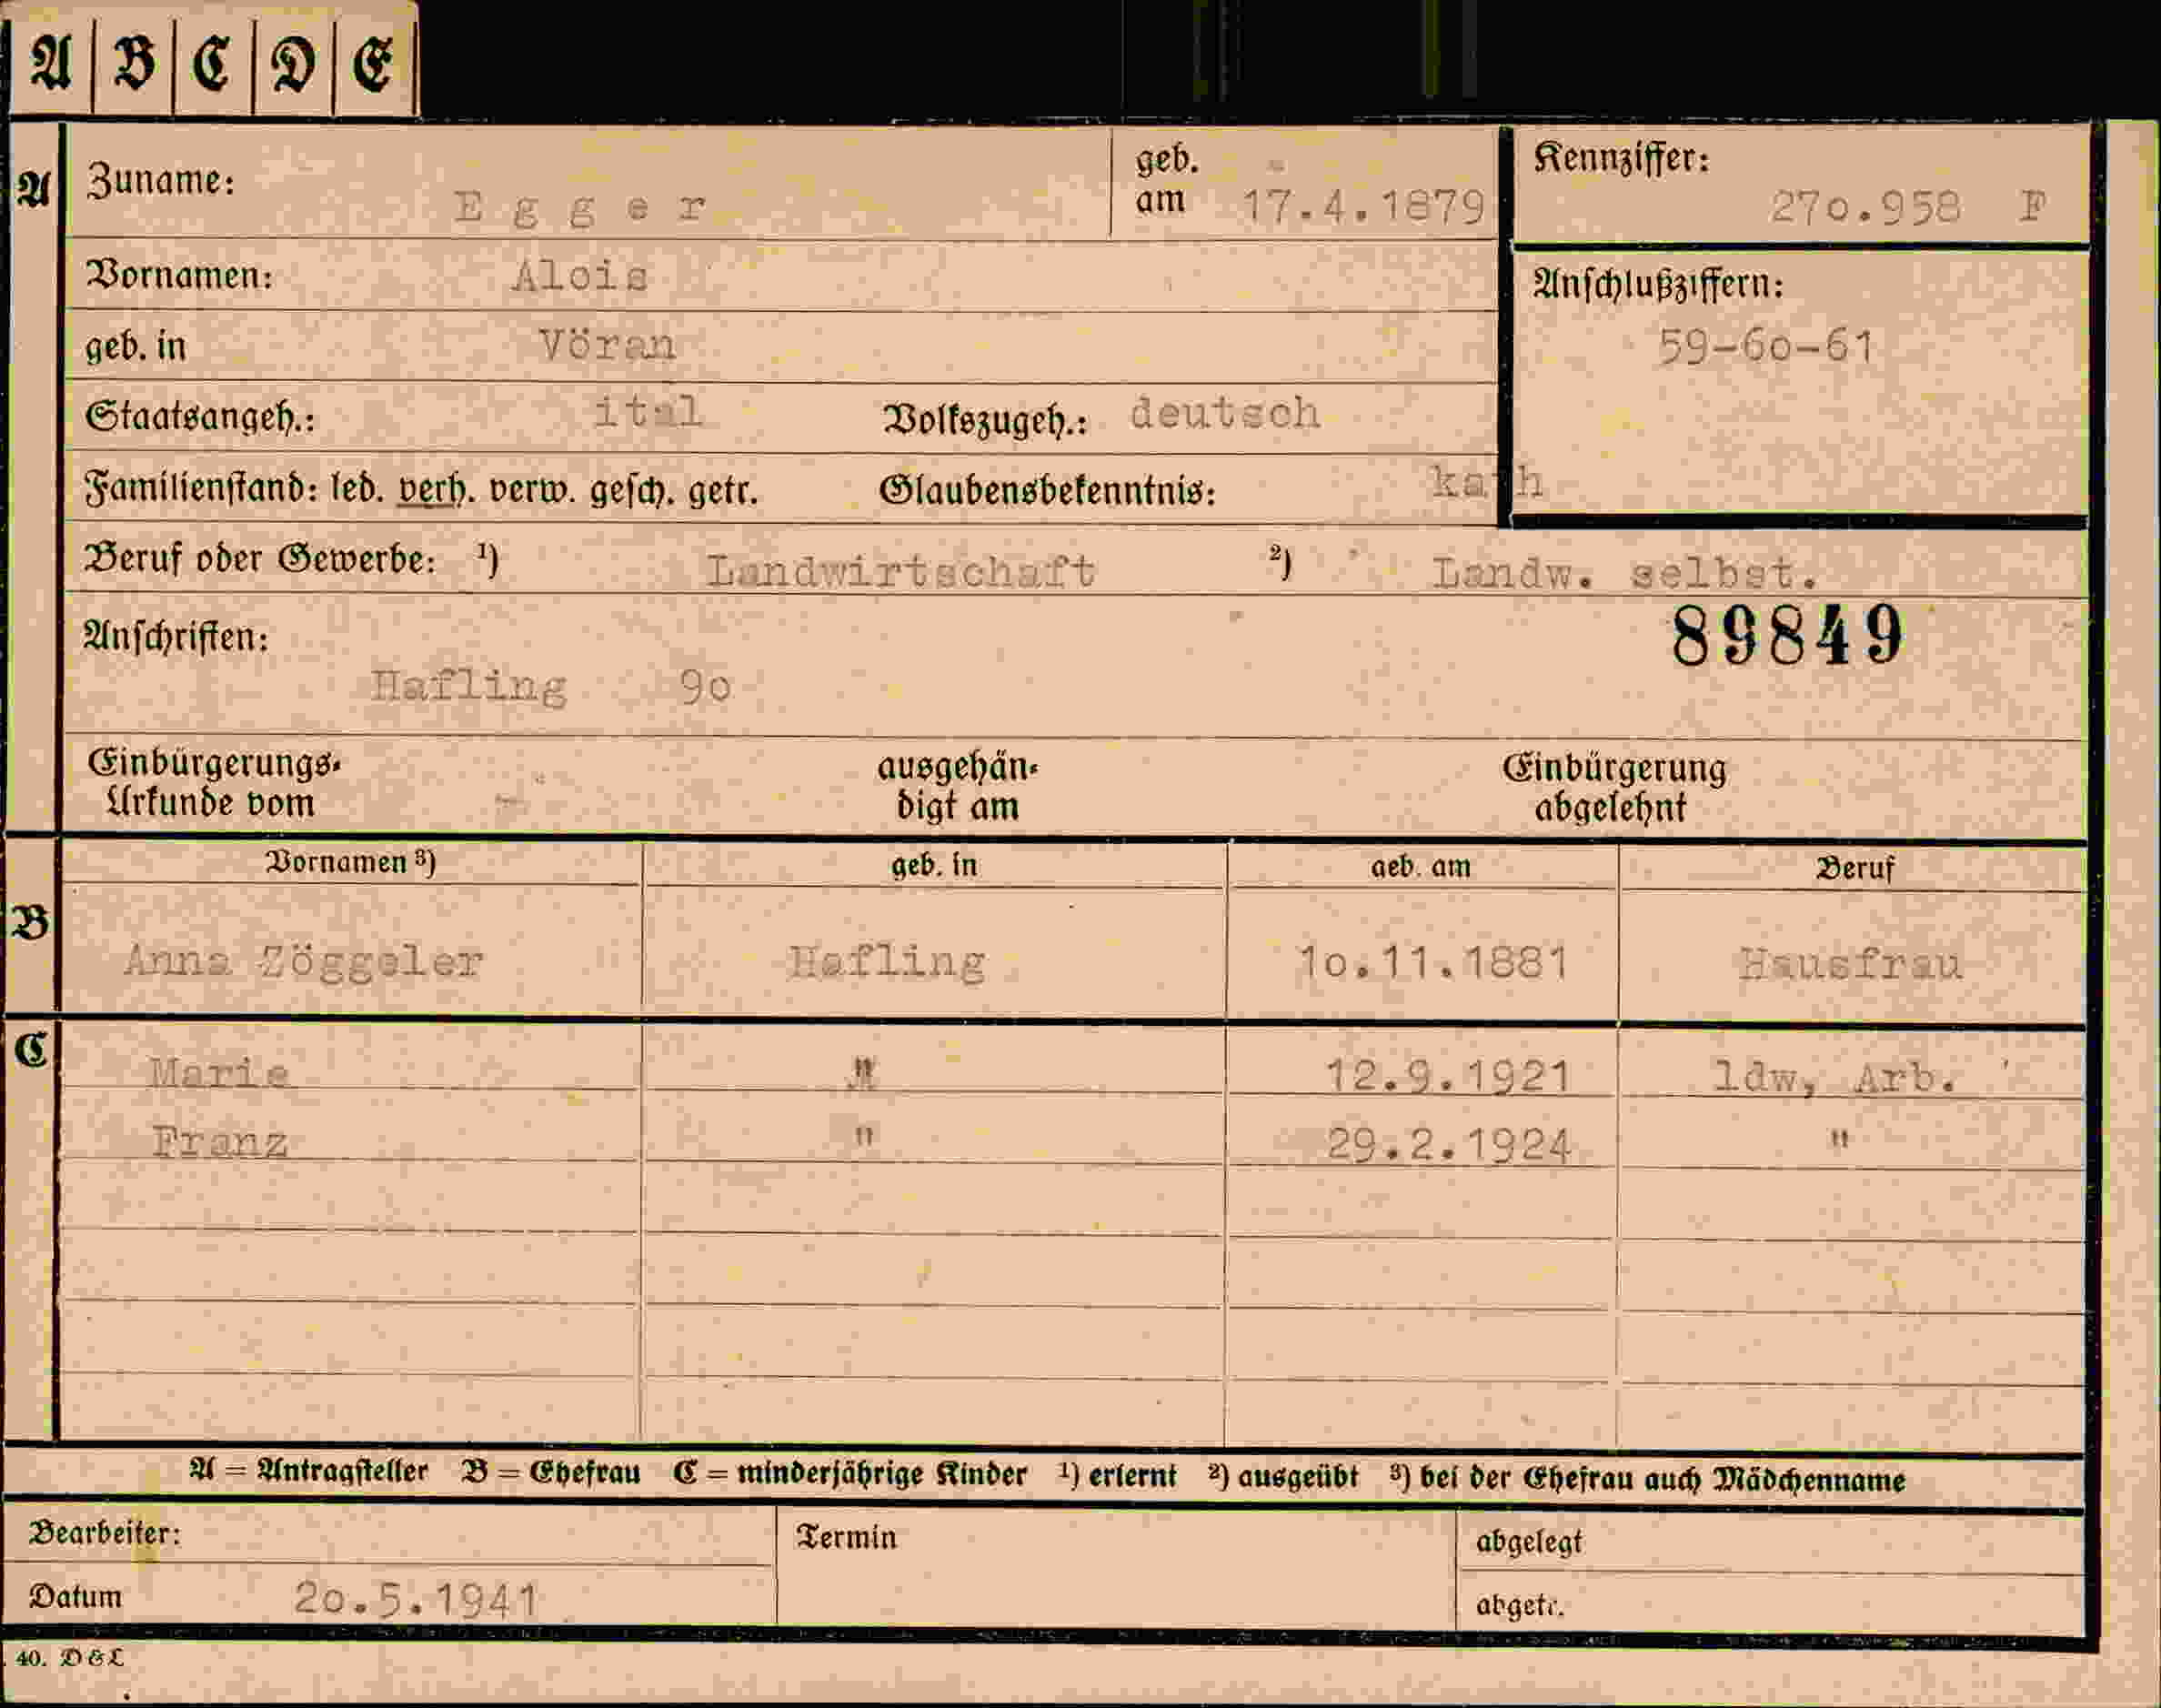 A B C D E
A Zuname: Egger geb. am 17.4.1879 Kennziffer: 27o.958 F
Vornamen: Alois Anschlußziffern:
geb. in Vöran 59-6o-61
Staatsangeh.: ital Volkszugeh.: deutsch
Familienstand: led. verh. verw. gesch. getr. Glaubensbekenntnis: kath
Beruf oder Gewerbe: ¹) Landwirtschaft ²) Landw. selbst.
Anschriften: 89849
Hafling 9o
Einbürgerungs- ausgehän- Einbürgerung
Urkunde vom digt am abgelehnt
Vornamen ³) geb. in geb. am Beruf
B Anna Zöggeler Hafling 1o.11.1881 Hausfrau
C Marie " 12.9.1921 ldw, Arb.
Franz " 29.2.1924 "
A = Antragsteller B = Ehefrau C = minderjährige Kinder ¹) erlernt ²) ausgeübt ³) bei der Ehefrau auch Mädchenname
Bearbeiter: Termin abgelegt
Datum 2o.5.1941 abgetr.
40. D & L